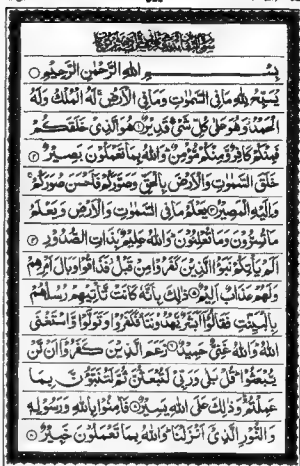 بِسْمِ اللهِ الرَّحْمٰنِ الرَّحِيْمِ
يُسَبِّحُ لِلّٰهِ مَا فِي السَّمٰوٰتِ وَمَا فِي الْاَرْضِ ۚ لَهُ الْمُلْكُ وَلَهُ
الْحَمْدُ ۡ وَهُوَ عَلٰى كُلِّ شَيْءٍ قَدِيْرٌ ۱ هُوَ الَّذِيْ خَلَقَكُمْ
فَمِنْكُمْ كَافِرٌ وَّمِنْكُمْ مُّؤْمِنٌ ۭ وَاللهُ بِمَا تَعْمَلُوْنَ بَصِيْرٌ ۲
خَلَقَ السَّمٰوٰتِ وَالْاَرْضَ بِالْحَقِّ وَصَوَّرَكُمْ فَاَحْسَنَ صُوَرَكُمْ ۚ
وَاِلَيْهِ الْمَصِيْرُ ۳ يَعْلَمُ مَا فِي السَّمٰوٰتِ وَالْاَرْضِ وَيَعْلَمُ
مَا تُسِرُّوْنَ وَمَا تُعْلِنُوْنَ ۭ وَاللهُ عَلِيْمٌۢ بِذَاتِ الصُّدُوْرِ ۴
اَلَمْ يَاْتِكُمْ نَبَؤُا الَّذِيْنَ كَفَرُوْا مِنْ قَبْلُ ۡ فَذَاقُوْا وَبَالَ اَمْرِهِمْ
وَلَهُمْ عَذَابٌ اَلِيْمٌ ۵ ذٰلِكَ بِاَنَّهٗ كَانَتْ تَّاْتِيْهِمْ رُسُلُهُمْ
بِالْبَيِّنٰتِ فَقَالُوْٓا اَبَشَرٌ يَّهْدُوْنَنَا ۡ فَكَفَرُوْا وَتَوَلَّوْا وَّاسْتَغْنَى
اللهُ ۭ وَاللهُ غَنِيٌّ حَمِيْدٌ ۶ زَعَمَ الَّذِيْنَ كَفَرُوْٓا اَنْ لَّنْ
يُّبْعَثُوْا ۭ قُلْ بَلٰى وَرَبِّيْ لَتُبْعَثُنَّ ثُمَّ لَتُنَبَّؤُنَّ بِمَا
عَمِلْتُمْ ۭ وَذٰلِكَ عَلَى اللهِ يَسِيْرٌ ۷ فَاٰمِنُوْا بِاللهِ وَرَسُوْلِهٖ
وَالنُّوْرِ الَّذِيْٓ اَنْزَلْنَا ۭ وَاللهُ بِمَا تَعْمَلُوْنَ خَبِيْرٌ ۸